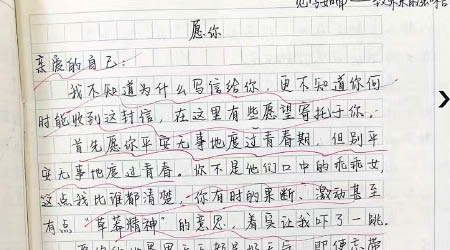 愿你
亲爱的自己:
我不知道为什么写信给你,更不知道你何
时能收到这封信,在这里有些愿望寄托于你。
首先愿你平安无事地度过青春期,但别平
安无事地度过青春。你不是他们口中的乖乖女,
这点我比谁都清楚,你有时的果断、激动甚至
有点“草莓精神”的意思,着实让我吓了一跳。